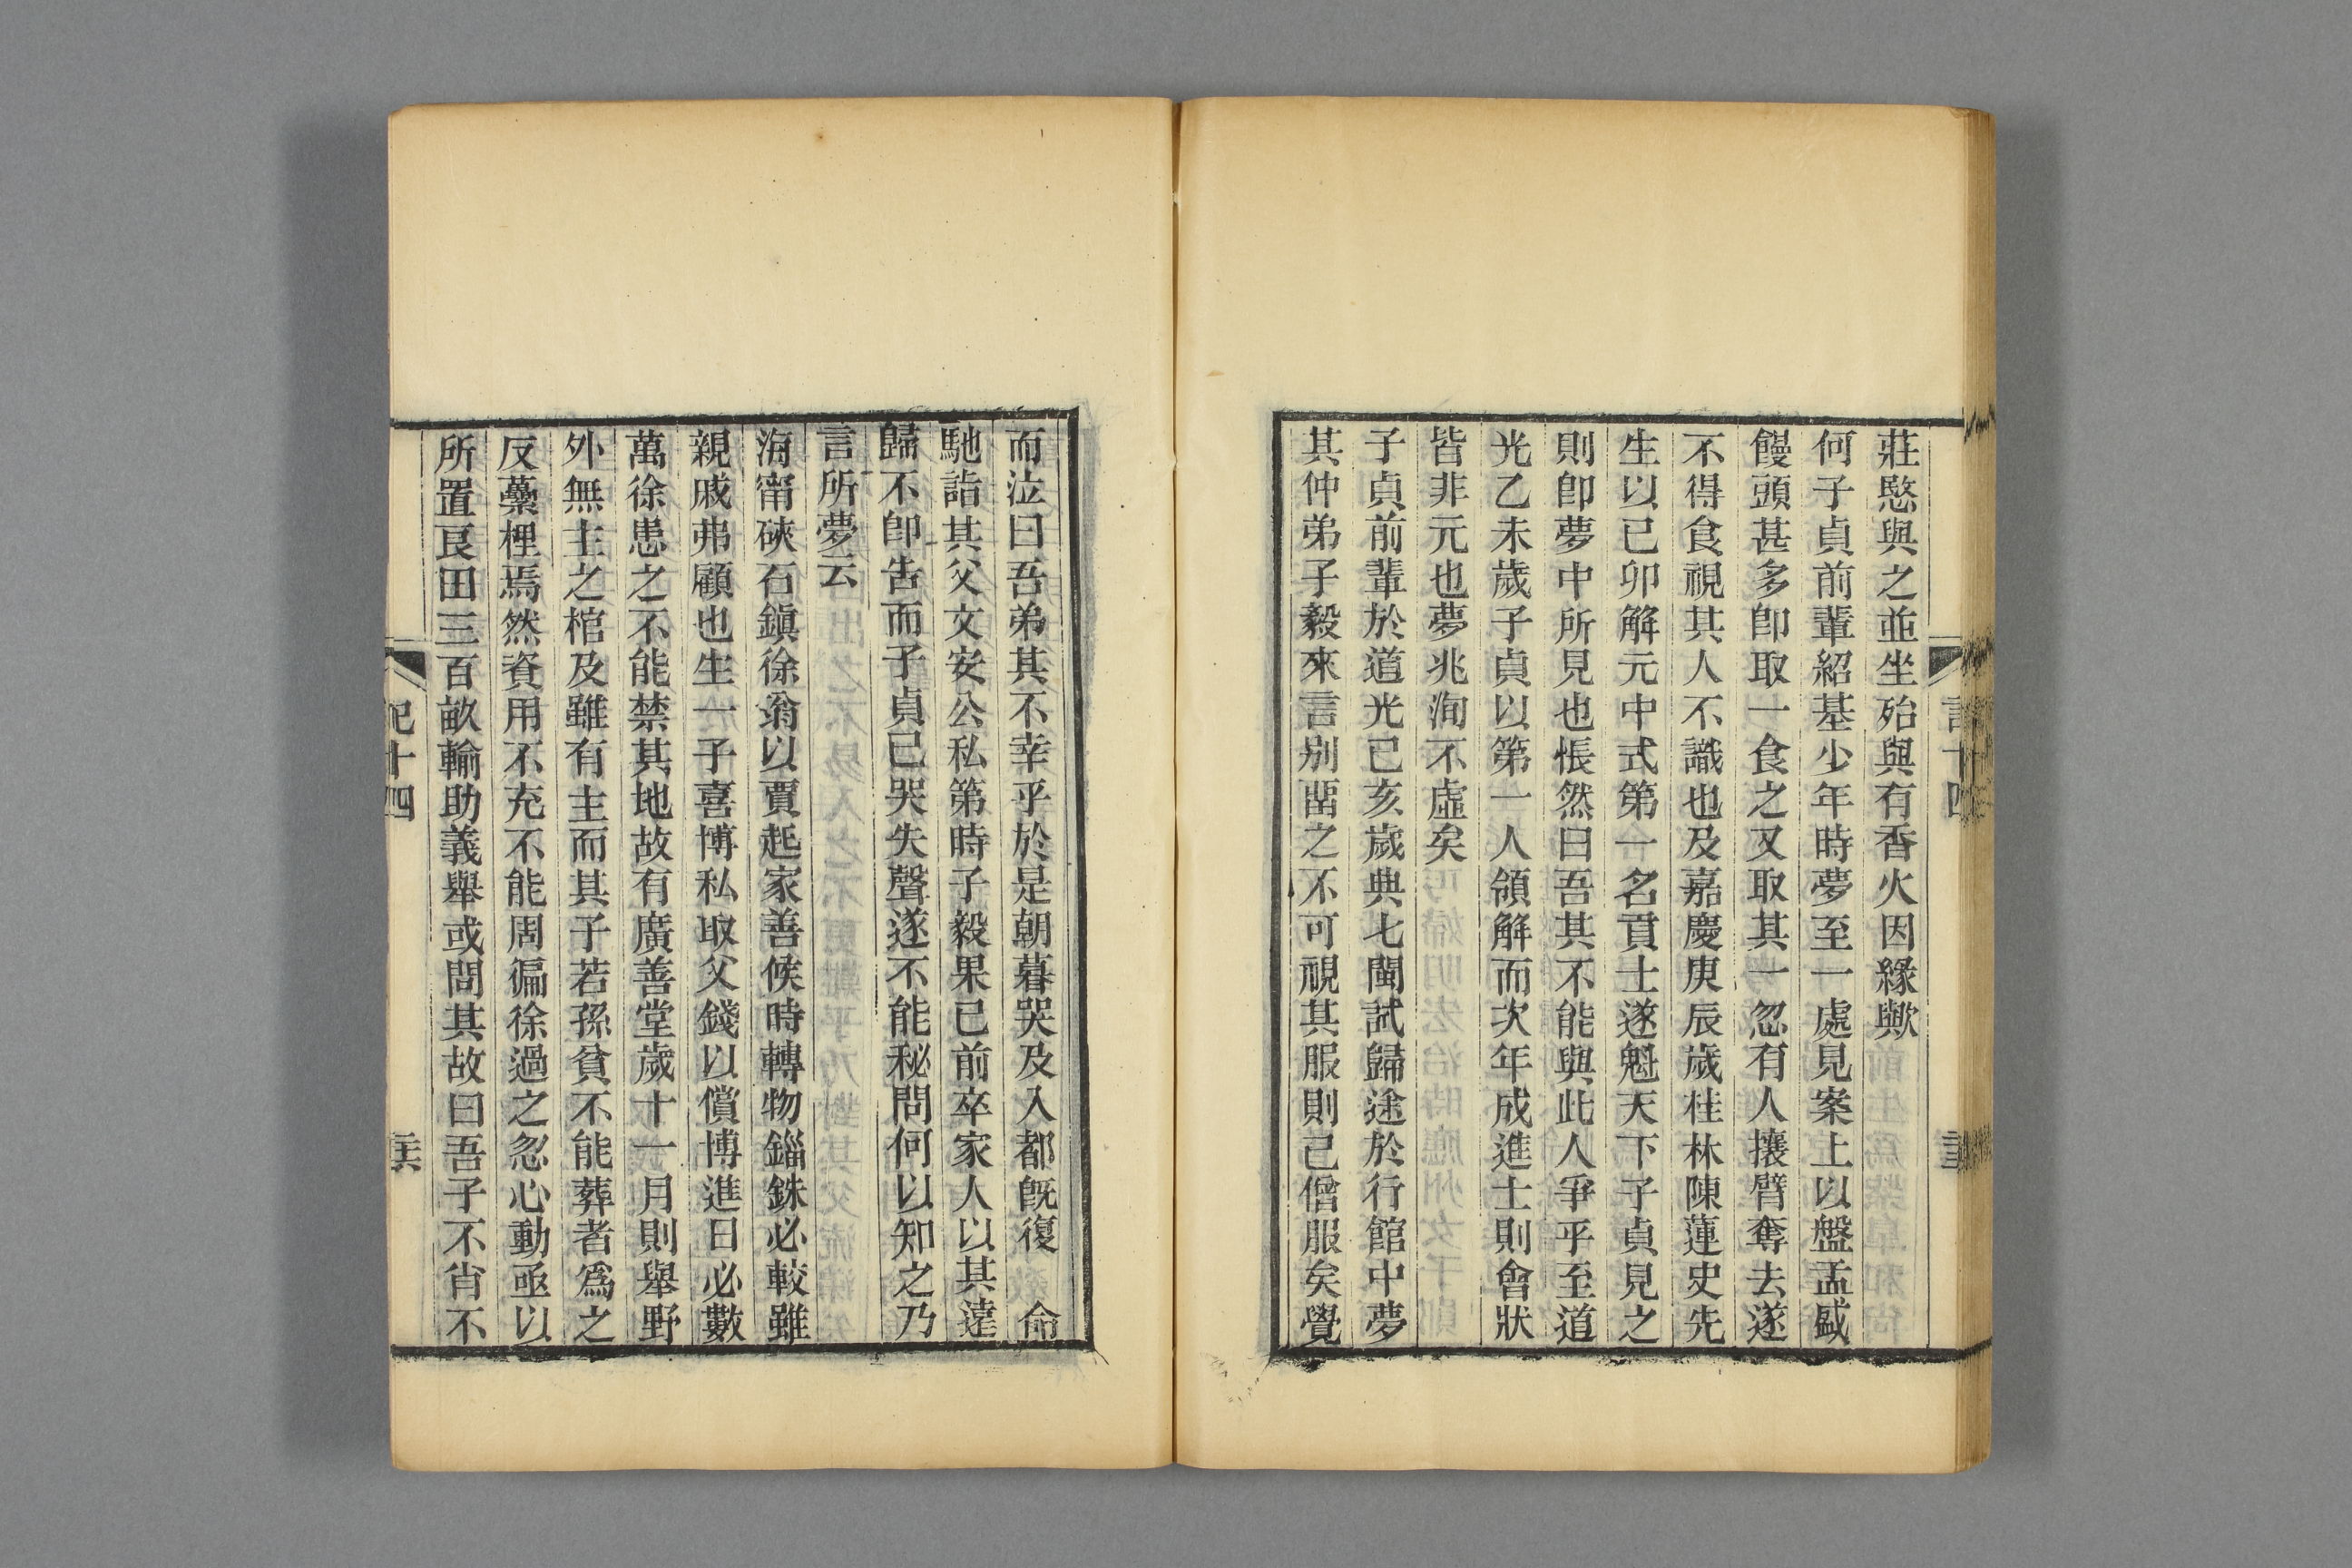 莊愍與之並坐殆與有香火因緣歟
何子貞前輩紹基少年時夢至一處見案上以盤盂盛
饅頭甚多卽取一食之又取其一忽有人攘臂奪去遂
不得食視其人不識也及嘉慶庚辰歲桂林陳蓮史先
生以已卯解元中式第一名貢士遂魁天下子貞見之
則卽夢中所見也悵然曰吾其不能與此人爭乎至道
光乙未歲子貞以第一人領解而次年成進士則會狀
皆非元也夢兆洵不虛矣
子貞前輩於道光已亥歲典七閩試歸途於行館中夢
其仲弟子毅來言别畱之不可視其服則已僧服矣覺
而泣曰吾弟其不幸乎於是朝暮哭及入都旣復　命
馳詣其父文安公私第時子毅果已前卒家人以其遠
歸不卽告而子貞已哭失聲遂不能秘問何以知之乃
言所夢云
海甯硤石鎭徐翁以賈起家善候時轉物錙銖必較雖
親戚弗顧也生一子喜博私取父錢以償博進日必數
萬徐患之不能禁其地故有廣善堂歲十一月則舉野
外無主之棺及雖有主而其子若孫貧不能葬者爲之
反虆梩焉然資用不充不能周徧徐過之忽心動亟以
所置良田三百畝輸助義舉或問其故曰吾子不肖不
記十四